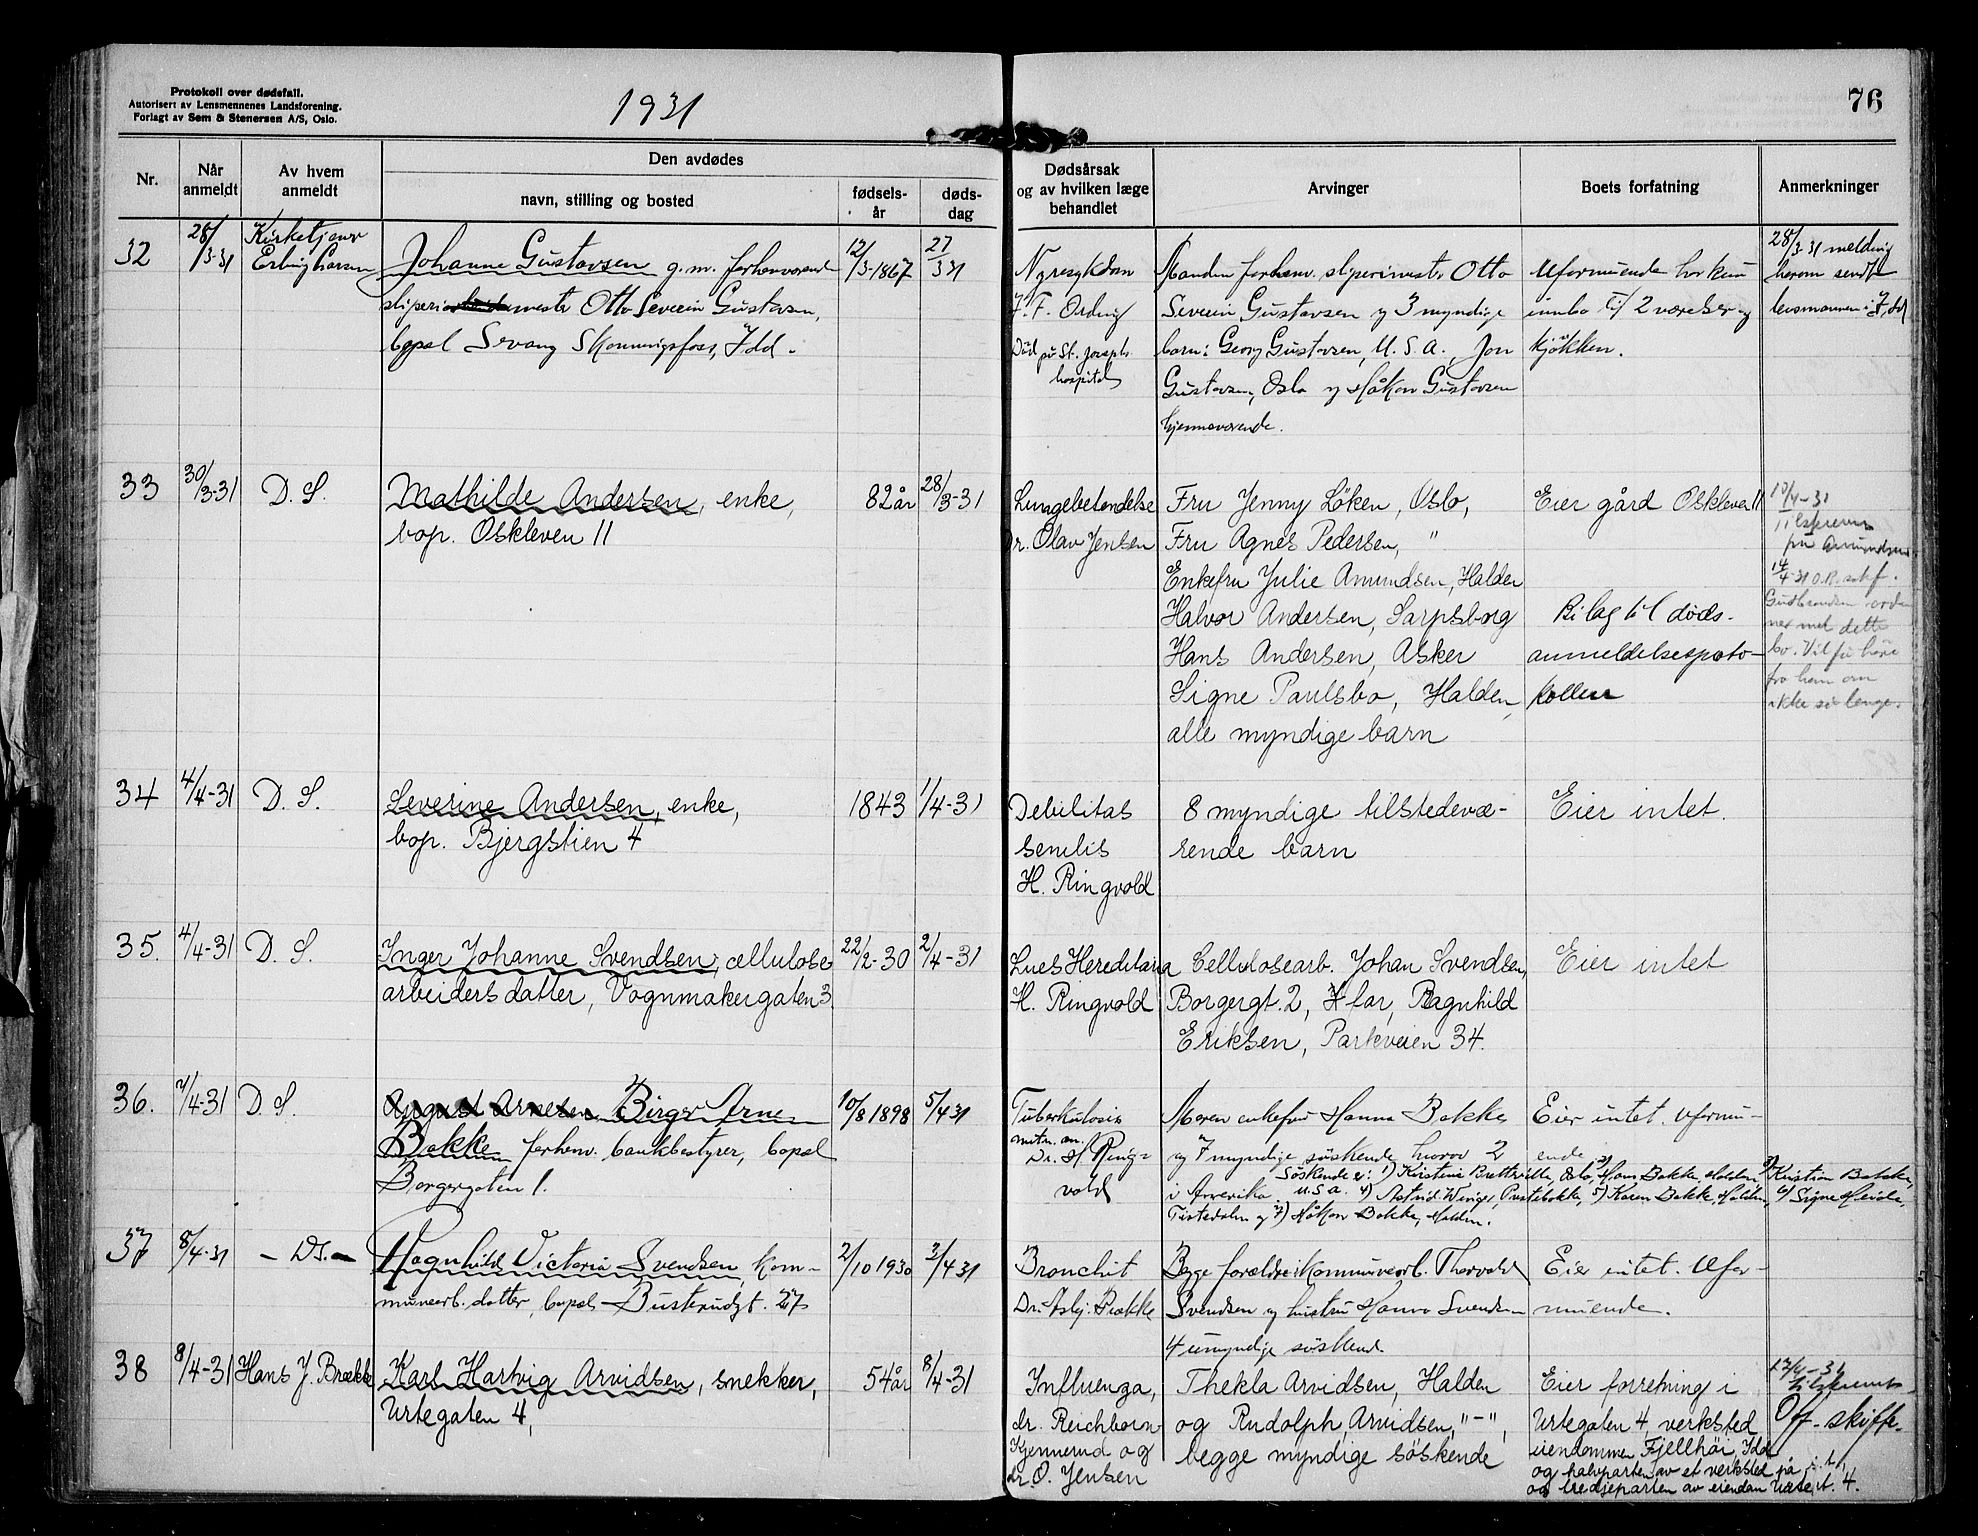 Protokoll over dødsfall.
Autorisert av Lensmennenes Landsforening.
Forlagt av Sem & Stenersen A/S, Oslo.
1931
76
Nr.
Når anmeldt
Av hvem anmeldt
Den avdødes
navn, stilling og bosted
fødsels-år
døds-dag
Dødsårsak og av hvilken læge behandlet
Arvinger
Boets forfatning
Anmerkninger
32
28/3-31
Kirketjener
Erling Larsen
Johanne Gustavsen g.m. forhenværende
sliperimester Otto Severin Gustavsen,
bopæl Sevang Skonningsfoss, Idd.
12/3-1867
27/3 31
Nyresykdom
J. F. Ording
Död på St. Josephs
hospital
Manden forhenv. sliperimester Otto
Severin Gustavsen og 3 myndige
barn: Georg Gustavsen, U.S.A., Jon
Gustavsen, Oslo og Håkon Gustavsen
hjemmeværende.
Uformuende har kun
innbo til 2 værelser og
kjøkken.
28/3 31 melding
herom sendt
lensmannen i Idd
33
30/3-31
D. S.
Mathilde Andersen, enke,
bop. Oskleven 11
82 år
28/3-31
Lungebetendelse
dr. Olav Jensen
Fru Jenny Löken, Oslo,
Fru Agnes Pedersen, "
Enkefru Julie Amundsen, Halden
Halvor Andersen, Sarpsborg
Hans Andersen, Asker
Signe Paulsbo, Halden,
alle myndige barn
Eier gård Oskleven 11
Bilag til døds-
anmeldelsesproto-
kollen
10/4-31
tilskreven
fru Amundsen
14/4-31 O.R. sakf.
Gudbrandsen ord-
ner med dette
bo. Vil få høre
fra ham om
ikke så lenge.
34
4/4-31
D. S.
Severine Andersen, enke,
bop. Bjergstien 4
1843
1/4-31
Debilitas
senilis
H. Ringvold
8 myndige tilstedevæ-
rende barn
Eier intet.
35.
4/4-31
D. S.
Inger Johanne Svendsen, cellulose
arbeiders datter, Vognmakergaten 3.
22/2-30
2/4-31
Lues Hereditaria
H. Ringvold
Cellulosearb. Johan Svendsen,
Borgergt. 2, far, Ragnhild
Eriksen, Parkveien 34.
Eier intet
36.
7/4-31
D. S.
August Arnesen Birger Arne
Bakke forhenv. bankbestyrer, bopæl
Borgergaten 1.
10/8 1898
5/4 31
Tuberkulosis
Dr. H. Ring-
vold
Moren enkefru Hanna Bakke
og 7 myndige söskende hvorav 2
i Amerika. Söskende er: 1) Kirstine Brettville, Oslo, 2) Hans Bakke, Halden, 3) Kristian Bakke,
U.S.A. 4) Astrid Wenger, Prestebakke, 5) Karen Bakke, Halden, 6) Signe Heide,
Tistedalen og 7) Håkon Bakke, Halden.
Eier intet. Uformu-
ende
37
8/4-31
— Ds. —
Ragnhild Victoria Svendsen, kom-
munearb. datter, bopæl Busterudgt. 27
2/10 1930
3/4 31
Bronchit
Dr. Asbj. Brække
Begge forældre: Kommunearb. Thorvald
Svendsen og hustru Hanna Svendsen
4 umyndige söskend
Eier intet. Ufor-
muende.
38
8/4-31
Hans J. Brække
Karl Hartvig Arvidsen, snekker,
Urtegaten 4,
54 år
8/4-31
Influenza,
dr. Reichborn-
Kjennerud og
dr. O. Jensen
Thekla Arvidsen, Halden
og Rudolph Arvidsen, "—",
begge myndige söskende
Eier forretning i
Urtegaten 4, verksted
eiendommen Fjellhöi, Idd
og halvparten av et verksted på
og tredjeparten av eiendom Urtegt. 4.
17/4-31
tilskrevet
Off. skifte.